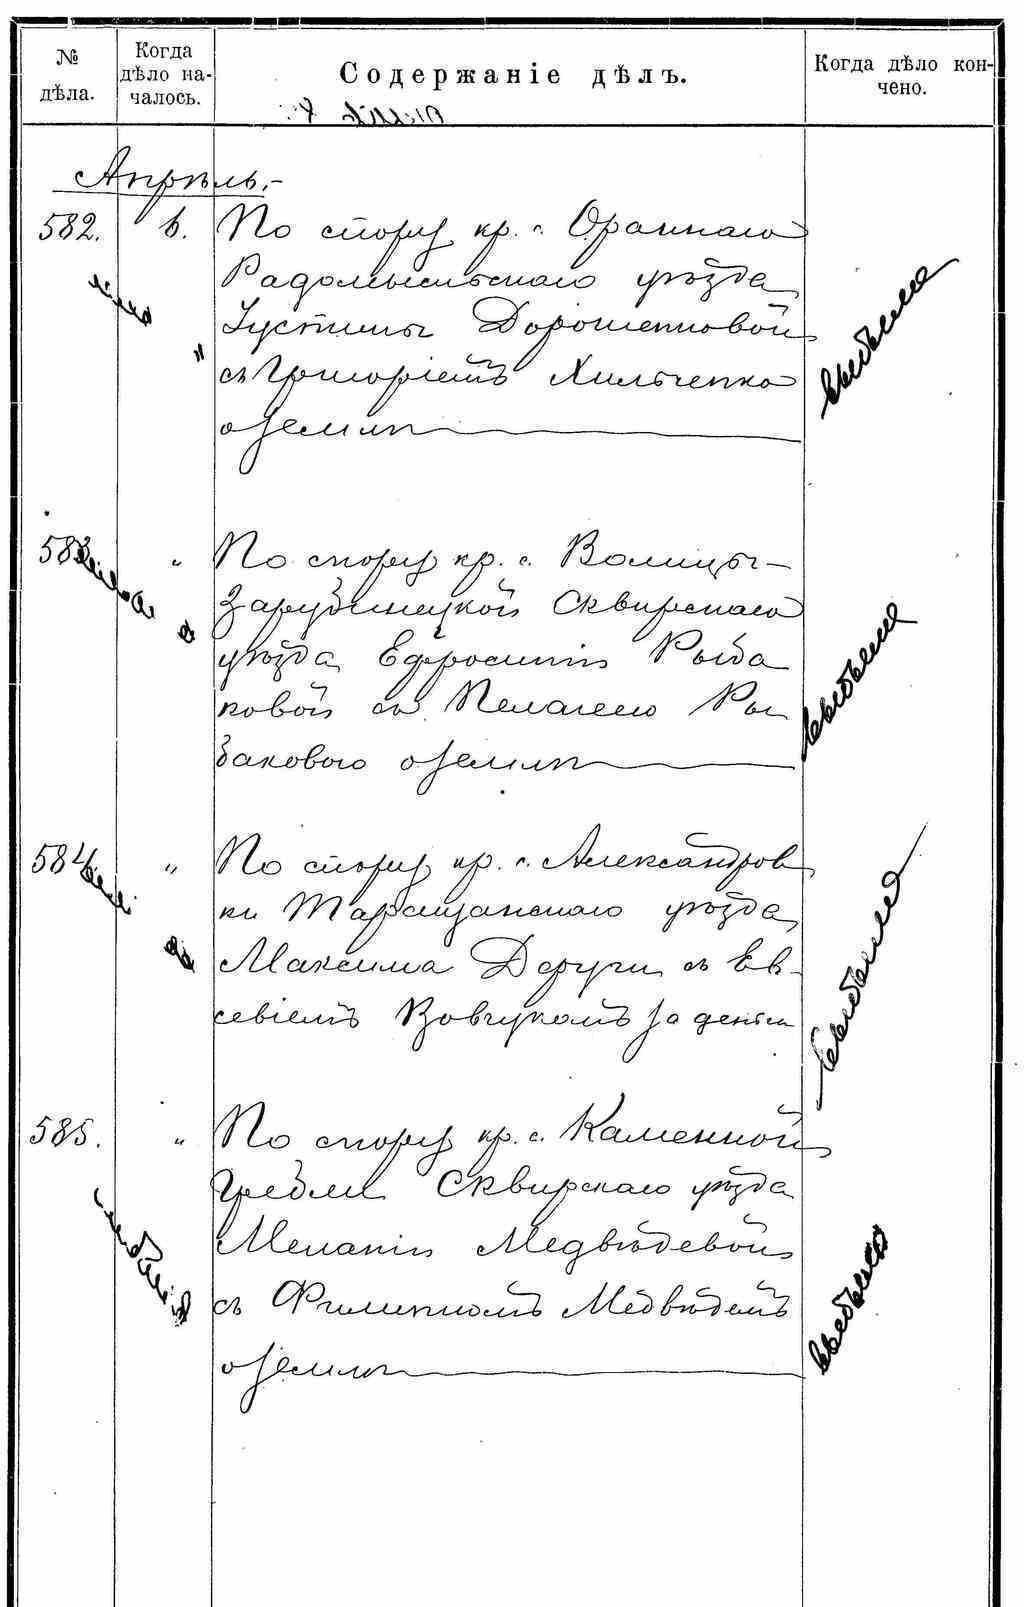 № дѣла.
Когда дѣло на-
чалось.
Содержаніе дѣлъ.
Когда дѣло кон-
чено.
Апрѣль.-
582. 6. По спору кр. с. Ораннаго
Радомысльскаго уѣзда
Іустины Дорошенковой
съ Григоріемъ Хильченко
о землѣ
выбыла
583 " По спору кр. с. Волицы-
Зарубинецкой Сквирскаго
уѣзда Ефросиніи Рыба
ковой съ Пелагеею Ры
баковою о землѣ
выбыла
584 " По спору кр. с. Александров
ки Таращанскаго уѣзда
Максима Деруги съ Ев-
севіемъ Вовчукомъ за деньги
выбыла
585. " По спору кр. с. Каменной
Гребли Сквирскаго уѣзда
Меланіи Медвѣдевой
съ Филиппомъ Медвѣдемъ
о землѣ
выбыла